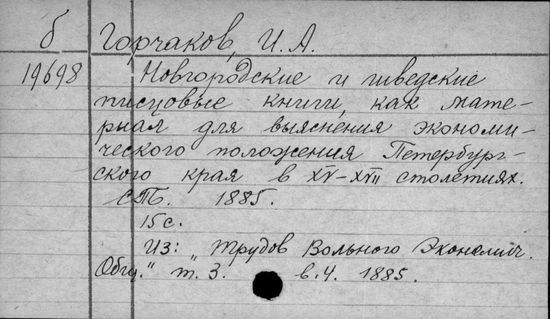 б Горчаков, И. А.
19698 Новгородские и шведские
писцовые книги, как мате-
риал для выяснения экономи-
ческого положения Петербург-
ского края в XV–XVII столетиях.
СПб. 1885.
15 с.
Из: „Трудов Вольного Экономич.
Общ." т. 3. в. 4. 1885.